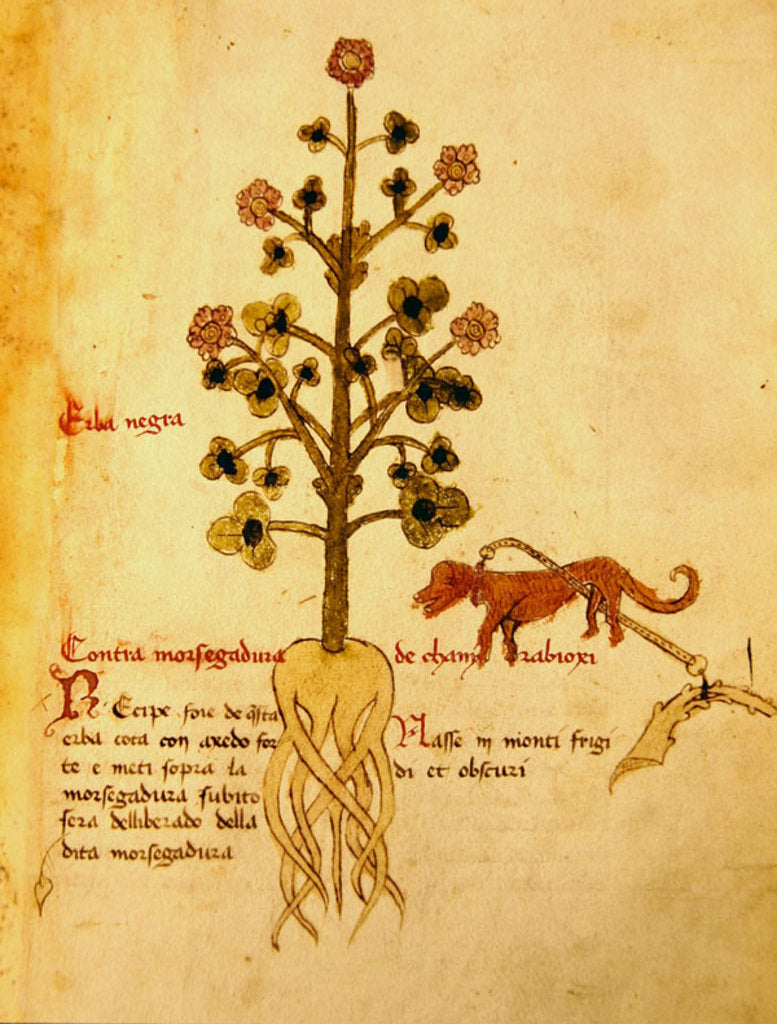 Erba negra
Contra morsegadura de chani rabioxi
Recipe foie de q̃sta
erba cota con axedo for
te e meti sopra la
morsegadura subito
sera delliberado della
dita morsegadura
Nasse in monti frigi
di et obscuri